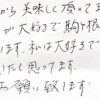 から美味しく頂いてま
が大好きで胸や根
ます。私は大好きで
いたく思ってます。
お願い致します